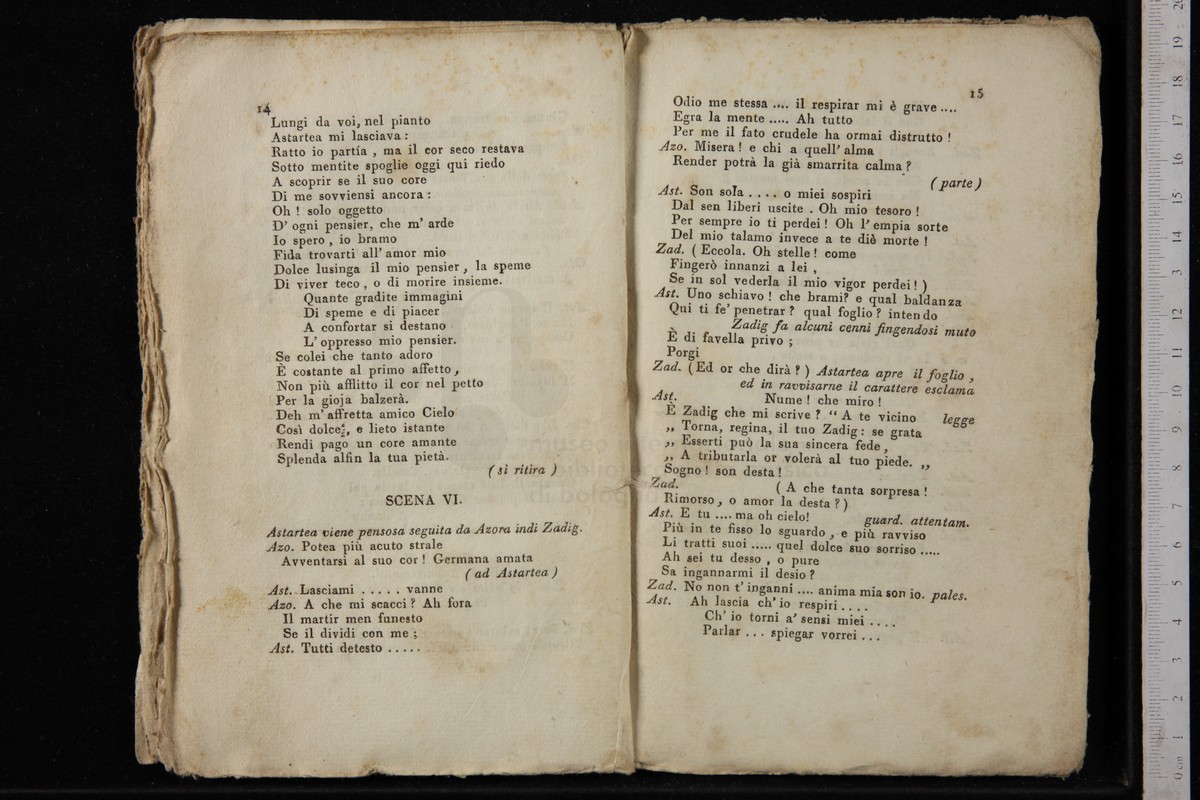 14
Lungi da voi, nel pianto
Astartea mi lasciava :
Ratto io partía , ma il cor seco restava
Sotto mentite spoglie oggi qui riedo
A scoprir se il suo core
Di me sovviensi ancora :
Oh ! solo oggetto
D' ogni pensier, che m' arde
Io spero , io bramo
Fida trovarti all' amor mio
Dolce lusinga il mio pensier , la speme
Di viver teco , o di morire insieme.
Quante gradite immagini
Di speme e di piacer
A confortar si destano
L' oppresso mio pensier.
Se colei che tanto adoro
È costante al primo affetto ,
Non più afflitto il cor nel petto
Per la gioja balzerà.
Deh m' affretta amico Cielo
Così dolce , e lieto istante
Rendi pago un core amante
Splenda alfin la tua pietà.
( si ritira )
SCENA VI.
Astartea viene pensosa seguita da Azora indi Zadig.
Azo. Potea più acuto strale
Avventarsi al suo cor ! Germana amata
( ad Astartea )
Ast. Lasciami . . . . . vanne
Azo. A che mi scacci ? Ah fora
Il martir men funesto
Se il dividi con me ;
Ast. Tutti detesto . . . . .
15
Odio me stessa .... il respirar mi è grave ....
Egra la mente ..... Ah tutto
Per me il fato crudele ha ormai distrutto !
Azo. Misera ! e chi a quell' alma
Render potrà la già smarrita calma ?
( parte )
Ast. Son sola . . . . o miei sospiri
Dal sen liberi uscite . Oh mio tesoro !
Per sempre io ti perdei ! Oh l' empia sorte
Del mio talamo invece a te diè morte !
Zad. ( Eccola. Oh stelle ! come
Fingerò innanzi a lei ,
Se in sol vederla il mio vigor perdei ! )
Ast. Uno schiavo ! che brami? e qual baldanza
Qui ti fe' penetrar ? qual foglio ? intendo
Zadig fa alcuni cenni fingendosi muto
È di favella privo ;
Porgi
Zad. ( Ed or che dirà ? ) Astartea apre il foglio ,
ed in ravvisarne il carattere esclama
Ast. Nume ! che miro !
È Zadig che mi scrive ? “ A te vicino legge
„ Torna, regina, il tuo Zadig : se grata
„ Esserti può la sua sincera fede ,
„ A tributarla or volerà al tuo piede. „
Sogno ! son desta !
Zad. ( A che tanta sorpresa !
Rimorso , o amor la desta ? )
Ast. E tu .... ma oh cielo! guard. attentam.
Più in te fisso lo sguardo , e più ravviso
Li tratti suoi ..... quel dolce suo sorriso .....
Ah sei tu desso , o pure
Sa ingannarmi il desio ?
Zad. No non t' inganni .... anima mia son io. pales.
Ast. Ah lascia ch' io respiri . . . .
Ch' io torni a' sensi miei . . . .
Parlar . . . spiegar vorrei . . .